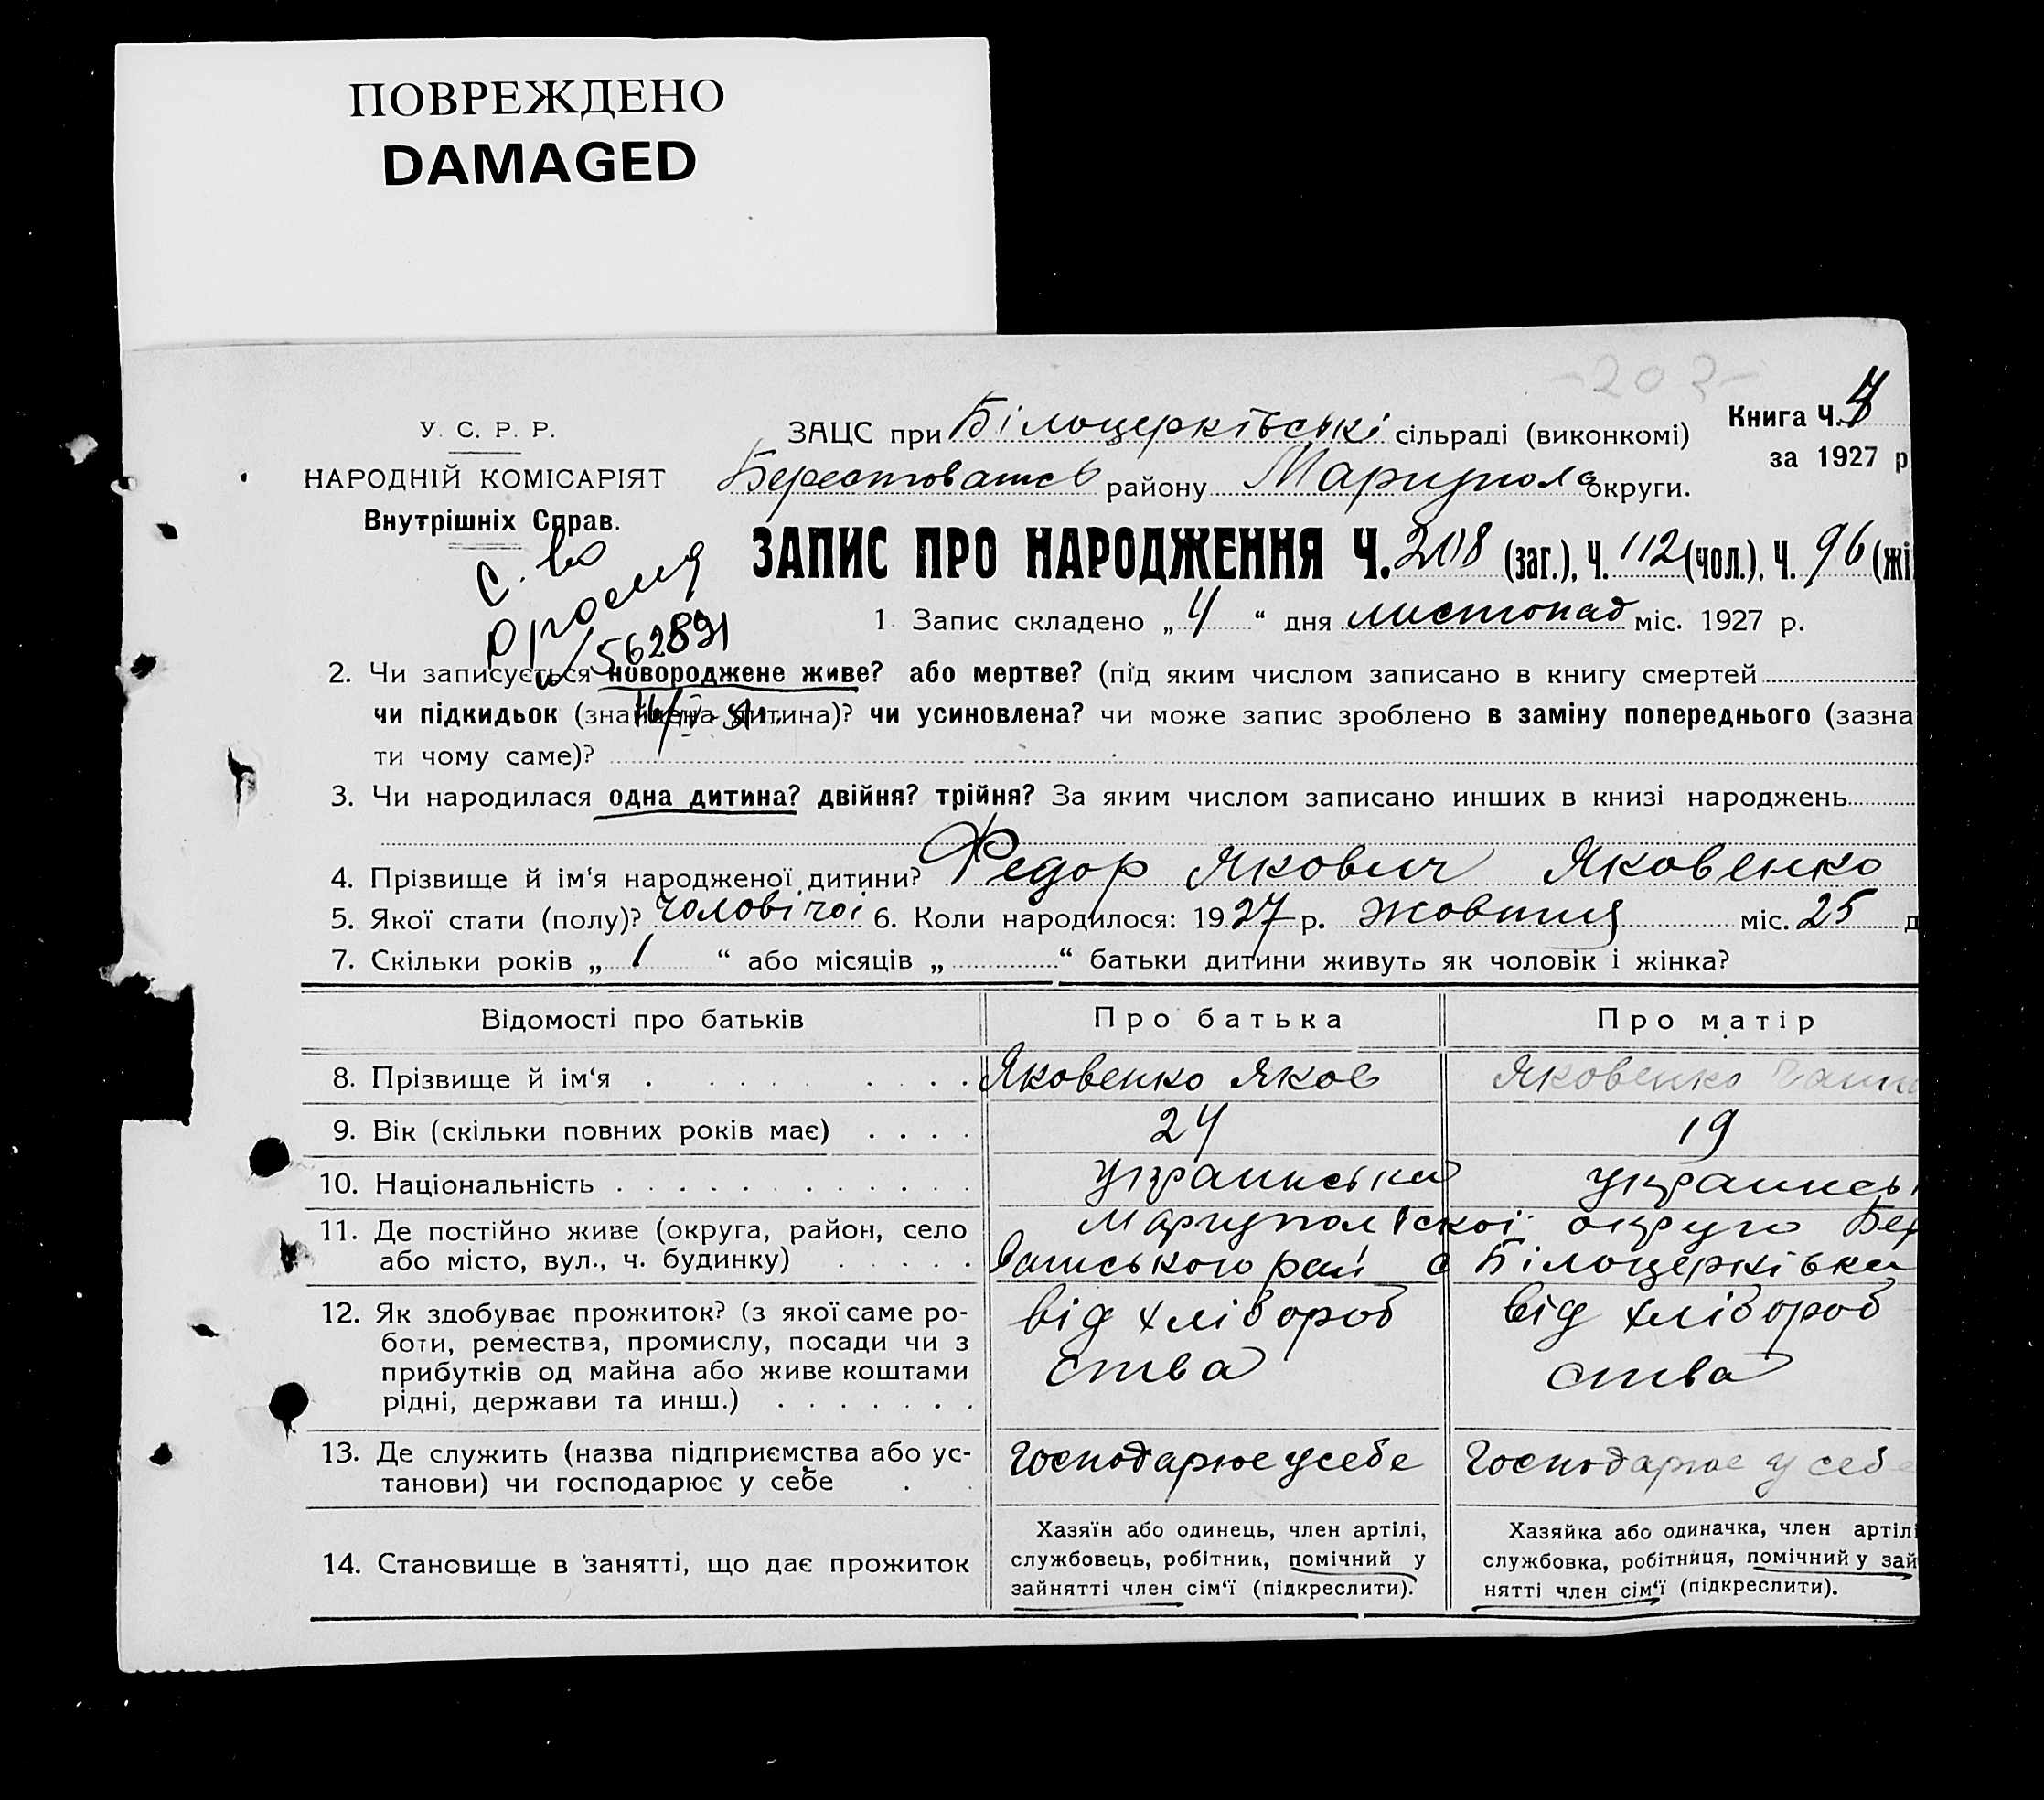 ПОВРЕЖДЕНО
DAMAGED
-203-
У. С. Р. Р.
НАРОДНІЙ КОМІСАРІЯТ
Внутрішніх Справ.
ЗАЦС при Білоцерківські сільраді (виконкомі)
Книга Ч. 4
за 1927 р
району Маріупол округи.
ЗАПИС ПРО НАРОДЖЕННЯ Ч. 208 (заг.), Ч. 112 (чол.), Ч. 96 (жі
с. во
562891
1. Запис складено „ 4 “ дня листопад міс. 1927 р.
2. Чи записується новороджене живе? або мертве? (під яким числом записано в книгу смертей
чи підкидьок (знайдена дитина)? чи усиновлена? чи може запис зроблено в заміну попереднього (зазна
ти чому саме)?
3. Чи народилася одна дитина? двійня? трійня? За яким числом записано инших в книзі народжень
4. Прізвище й ім'я народженої дитини? Федор Якович Яковенко
5. Якої стати (полу)? чоловічоі 6. Коли народилося: 1927 р. жовтня міс. 25 д
7. Скільки років „ 1 “ або місяців „ “ батьки дитини живуть як чоловік і жінка?
Відомості про батьків
Про батька
Про матір
8. Прізвище й ім‘я
Яковенко Яков
Яковенко Ганна
9. Вік (скільки повних років має)
24
19
10. Національність
украинська
украинсь
11. Де постійно живе (округа, район, село
або місто, вул., ч. будинку)
Маріупольскоі округо Бер
рай с Білоцерківка
12. Як здобуває прожиток? (з якої саме ро-
боти, ремества, промислу, посади чи з
прибутків од майна або живе коштами
рідні, держави та инш.)
від хлібороб
ства
від хлібороб
ства
13. Де служить (назва підприємства або ус-
танови) чи господарює у себе
господарює усебе
господарює у себе
14. Становище в занятті, що дає прожиток
Хазяїн або одинець, член артілі,
службовець, робітник, помічний у
зайнятті член сім‘ї (підкреслити).
Хазяйка або одиначка, член артілі
службовка, робітниця, помічний у зай
нятті член сім‘ї (підкреслити).